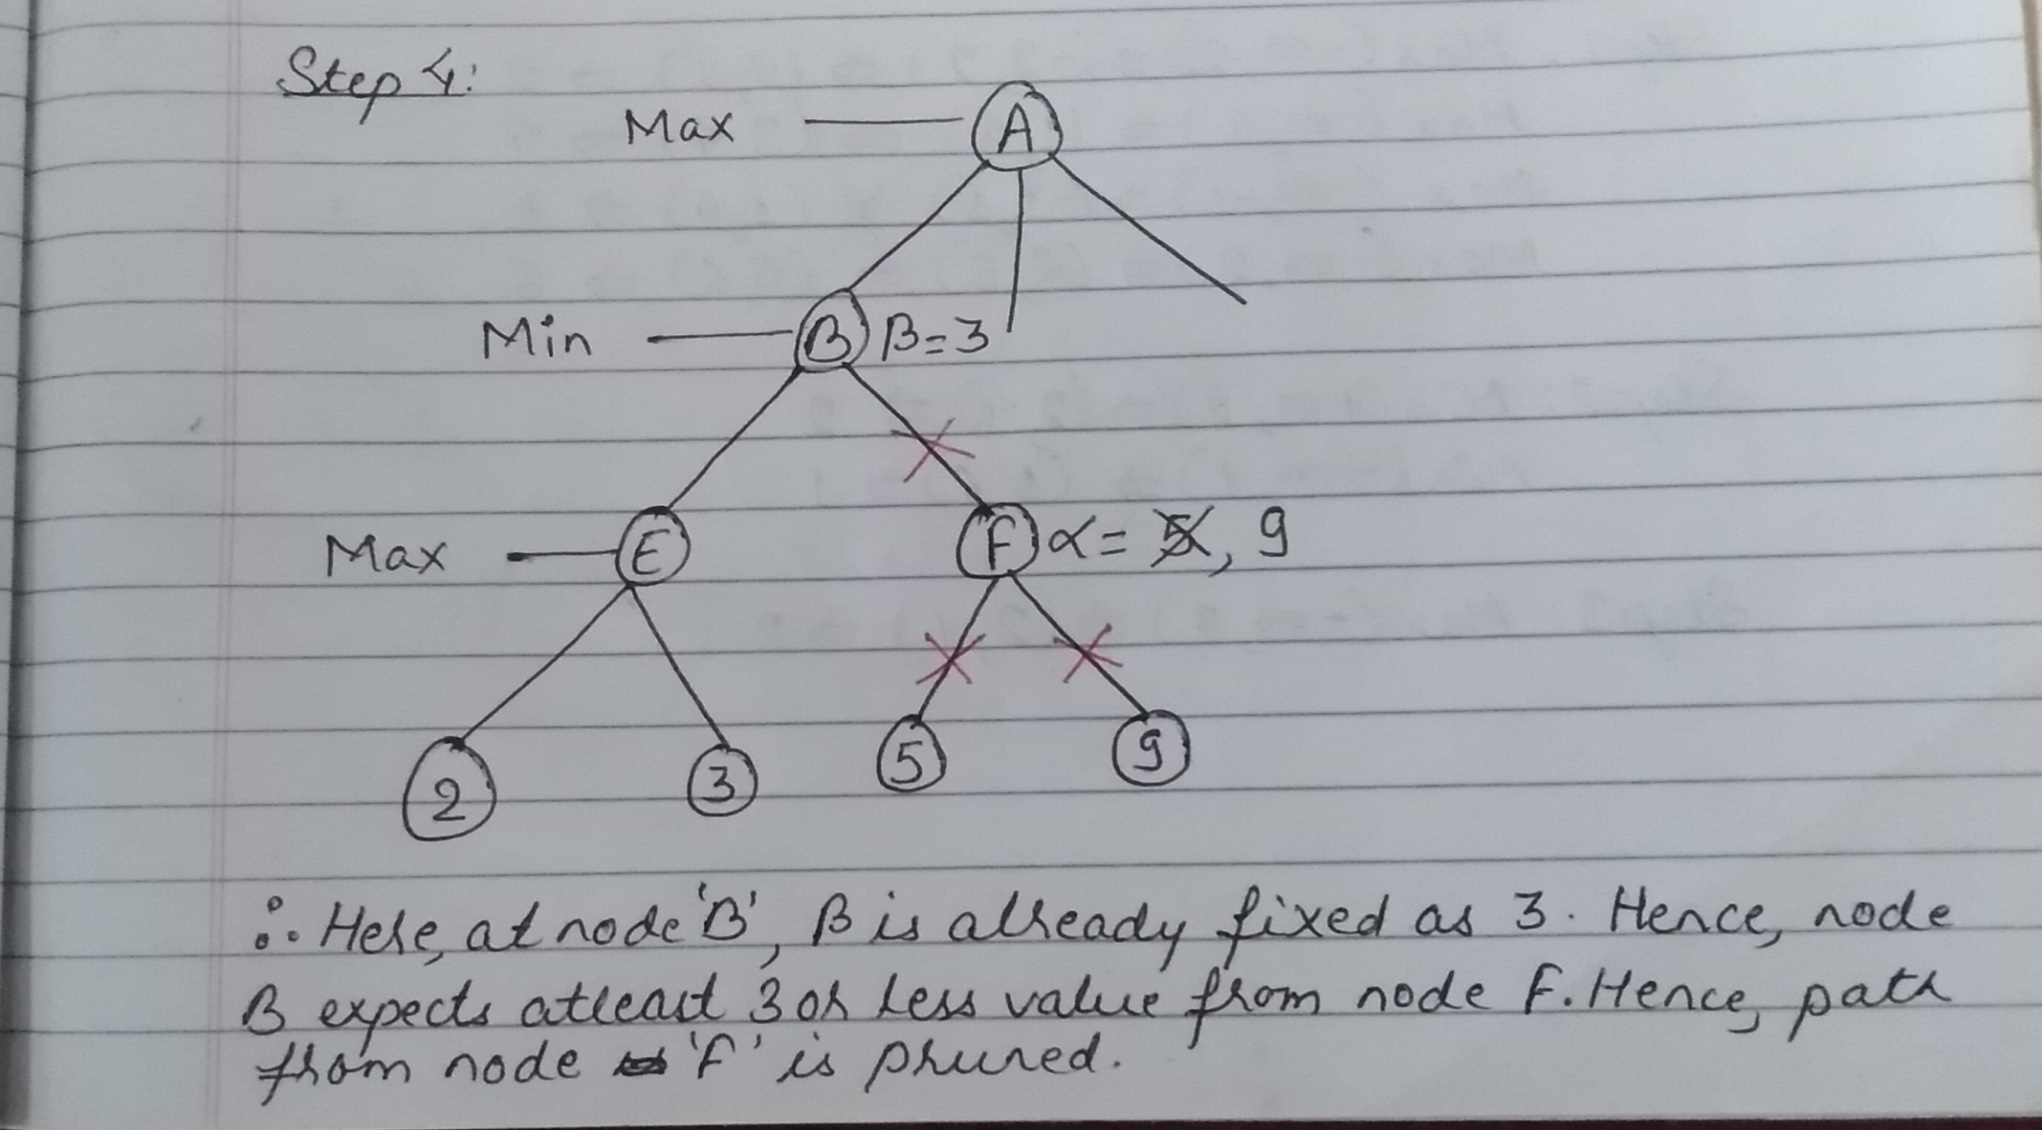 Step 4:
Max A
Min B β=3
Max E F α= 5, 9
2 3 5 9
∴ Here, at node 'B', β is already fixed as 3. Hence, node
B expects atleast 3 or less value from node F. Hence, path
from node 'F' is pruned.